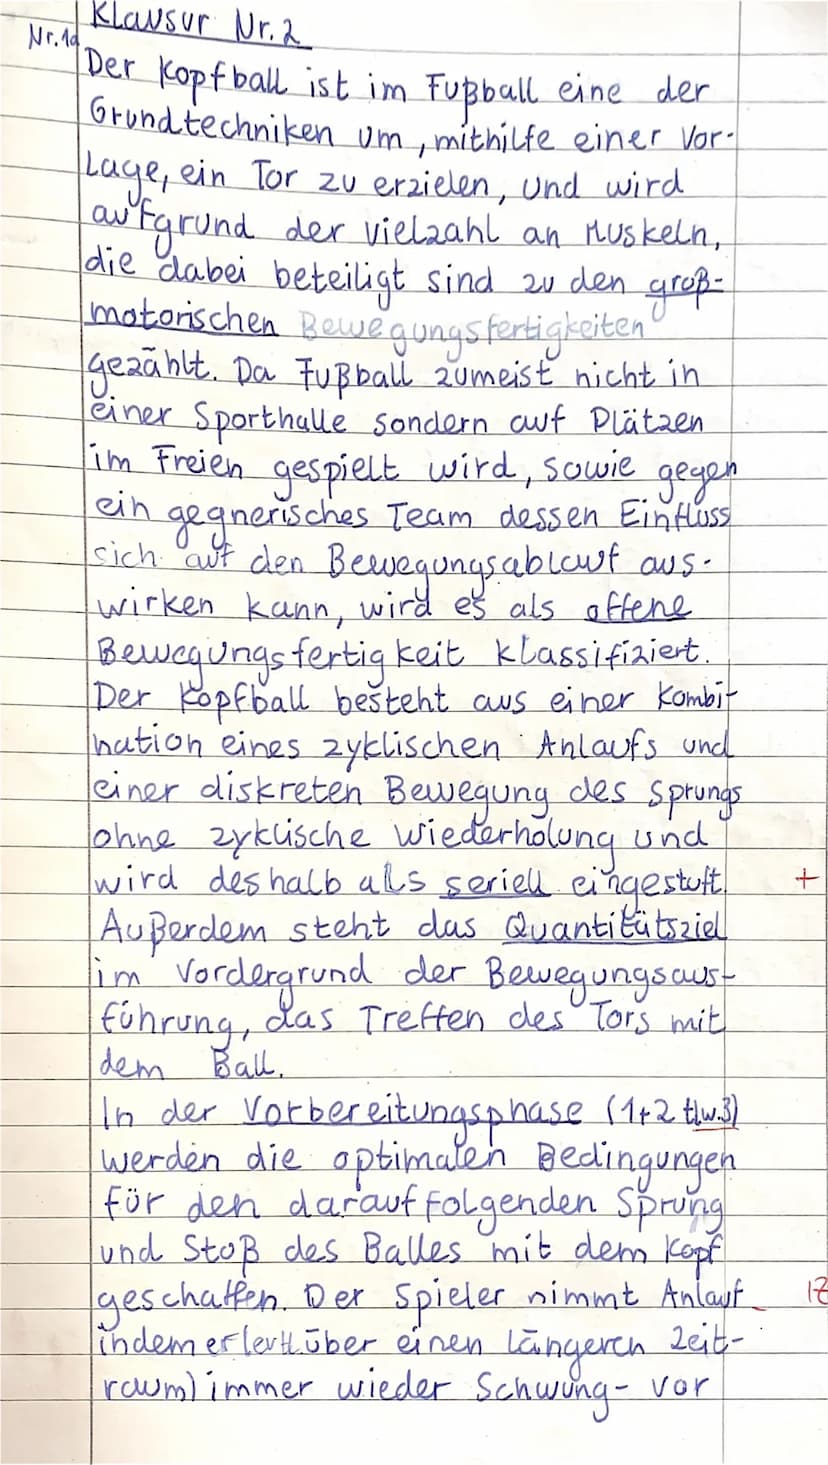 Klausur Nr. 2
Nr. 1a
Der Kopfball ist im Fußball eine der
Grundtechniken um, mithilfe einer Vor-
lage, ein Tor zu erzielen, und wird
aufgrund der vielzahl an Muskeln,
die dabei beteiligt sind zu den groß-
motorischen Bewegungsfertigkeiten
gezählt. Da Fußball zumeist nicht in
einer Sporthalle sondern auf Plätzen
im Freien gespielt wird, sowie gegen
ein gegnerisches Team dessen Einfluss
sich auf den Bewegungsablauf aus-
wirken kann, wird es als offene
Bewegungsfertigkeit klassifiziert.
Der Kopfball besteht aus einer Kombi-
nation eines zyklischen Anlaufs und
einer diskreten Bewegung des Sprungs
ohne zyklische Wiederholung und
wird deshalb als seriell eingestuft. +
Außerdem steht das Quantitätsziel
im Vordergrund der Bewegungsaus-
führung, das Treffen des Tors mit
dem Ball.
In der Vorbereitungsphase (1+2 tlw.3)
werden die optimalen Bedingungen
für den darauffolgenden Sprung
und Stoß des Balles mit dem Kopf
geschaffen. Der Spieler nimmt Anlauf
indem er (evtl. über einen längeren Zeit-
raum) immer wieder Schwung- vor